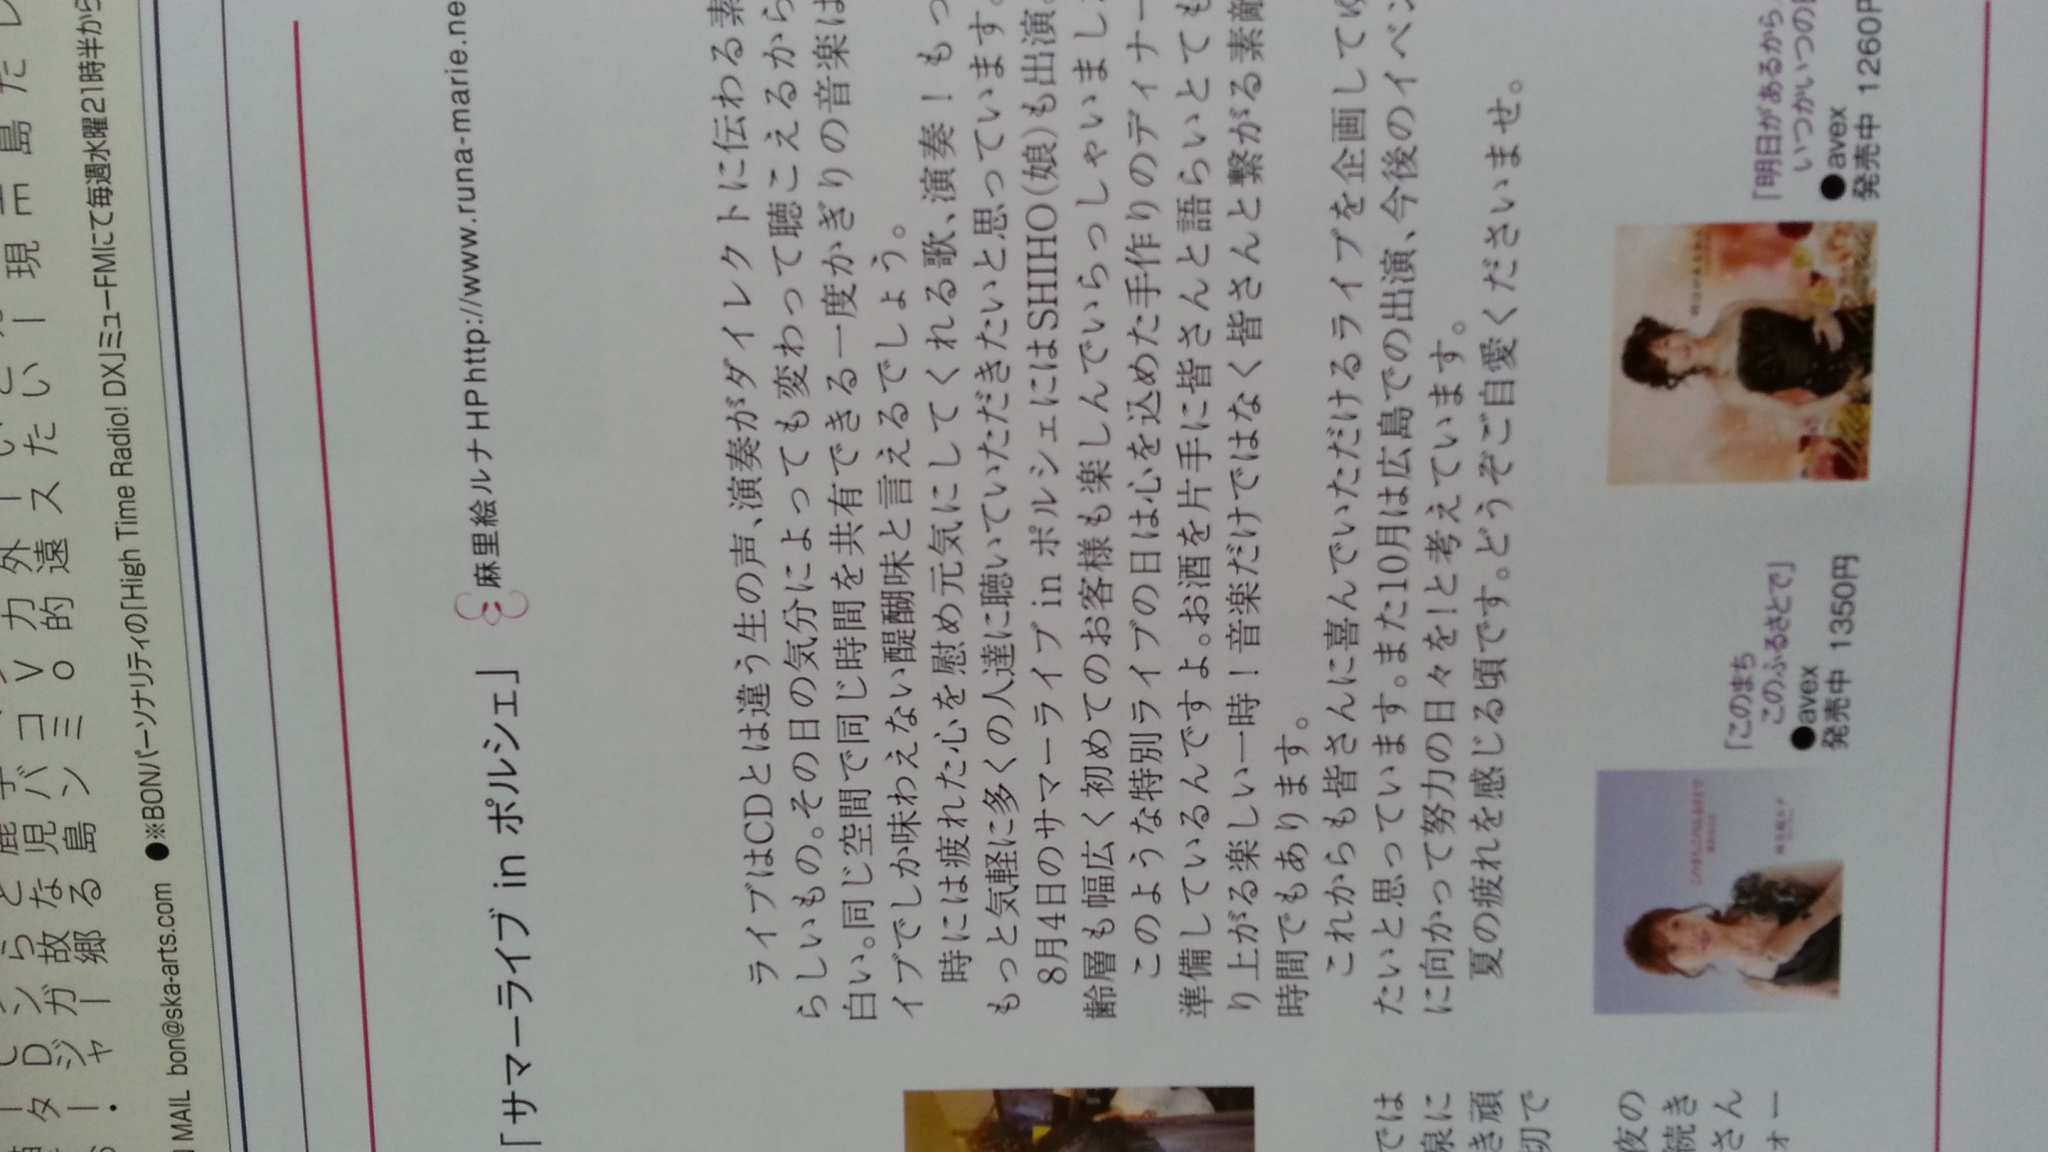 「サマーライブ in ポルシェ」
麻里絵ルナ HP http://www.runa-marie.ne
ライブはCDとは違う生の声、演奏がダイレクトに伝わる素
らしいもの。その日の気分によっても変わって聴こえるから
白い。同じ空間で同じ時間を共有できる一度かぎりの音楽は
イブでしか味わえない醍醐味と言えるでしょう。
時には疲れた心を慰め元気にしてくれる歌、演奏！もっ
もっと気軽に多くの人達に聴いていただきたいと思っています。
8月4日のサマーライブ in ポルシェにはSHIHO（娘）も出演。
齢層も幅広く初めてのお客様も楽しんでいらっしゃいまし
このような特別ライブの日は心を込めた手作りのディナー
準備しているんですよ。お酒を片手に皆さんと語らいとても
り上がる楽しい一時！音楽だけではなく皆さんと繋がる素敵
時間でもあります。
これからも皆さんに喜んでいただけるライブを企画してゆ
たいと思っています。また10月は広島での出演、今後のイベン
に向かって努力の日々を！と考えています。
夏の疲れを感じる頃です。どうぞご自愛くださいませ。
「このまち
このふるさとで」
●avex
発売中 1350円
「明日があるから
いつかいつの
●avex
発売中 1260円
MAIL bon@ska-arts.com ●※BONパーソナリティの「High Time Radio! DX」ミューFMにて毎週水曜21時半から
では
線に
き頑
切で
夜の
続き
さん
ォー